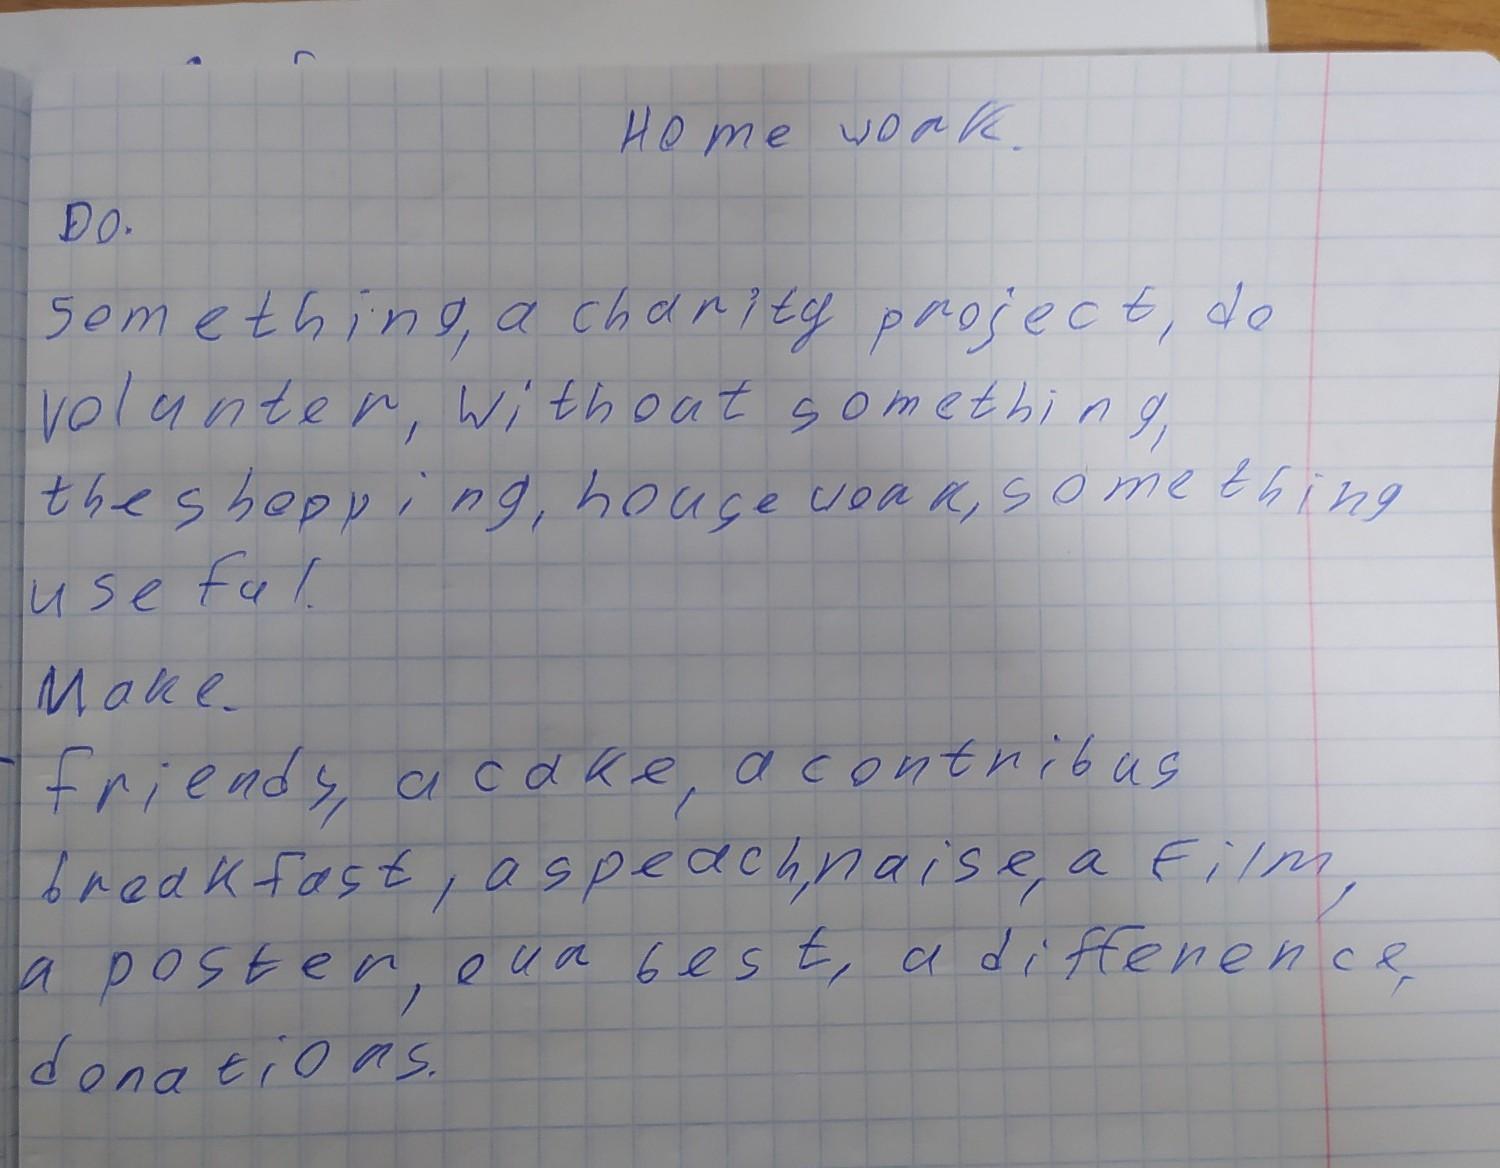 Home work.
Do.
something, a charity project, do
volunter, without something,
the shopping, house work, something
useful.
Make.
friends, a cake, a contribus
breakfast, a speach, naise, a film,
a poster, our best, a difference,
donations.